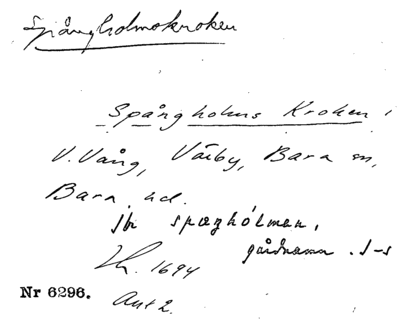 Spångholmokroken
Spångholms Kroken i
V. Vång, Väiby, Bara sn,
Bara hd.
jfr spæghólmen,
gårdnamn. J-s
Th. 1694
Ant 2.
Nr 6296.